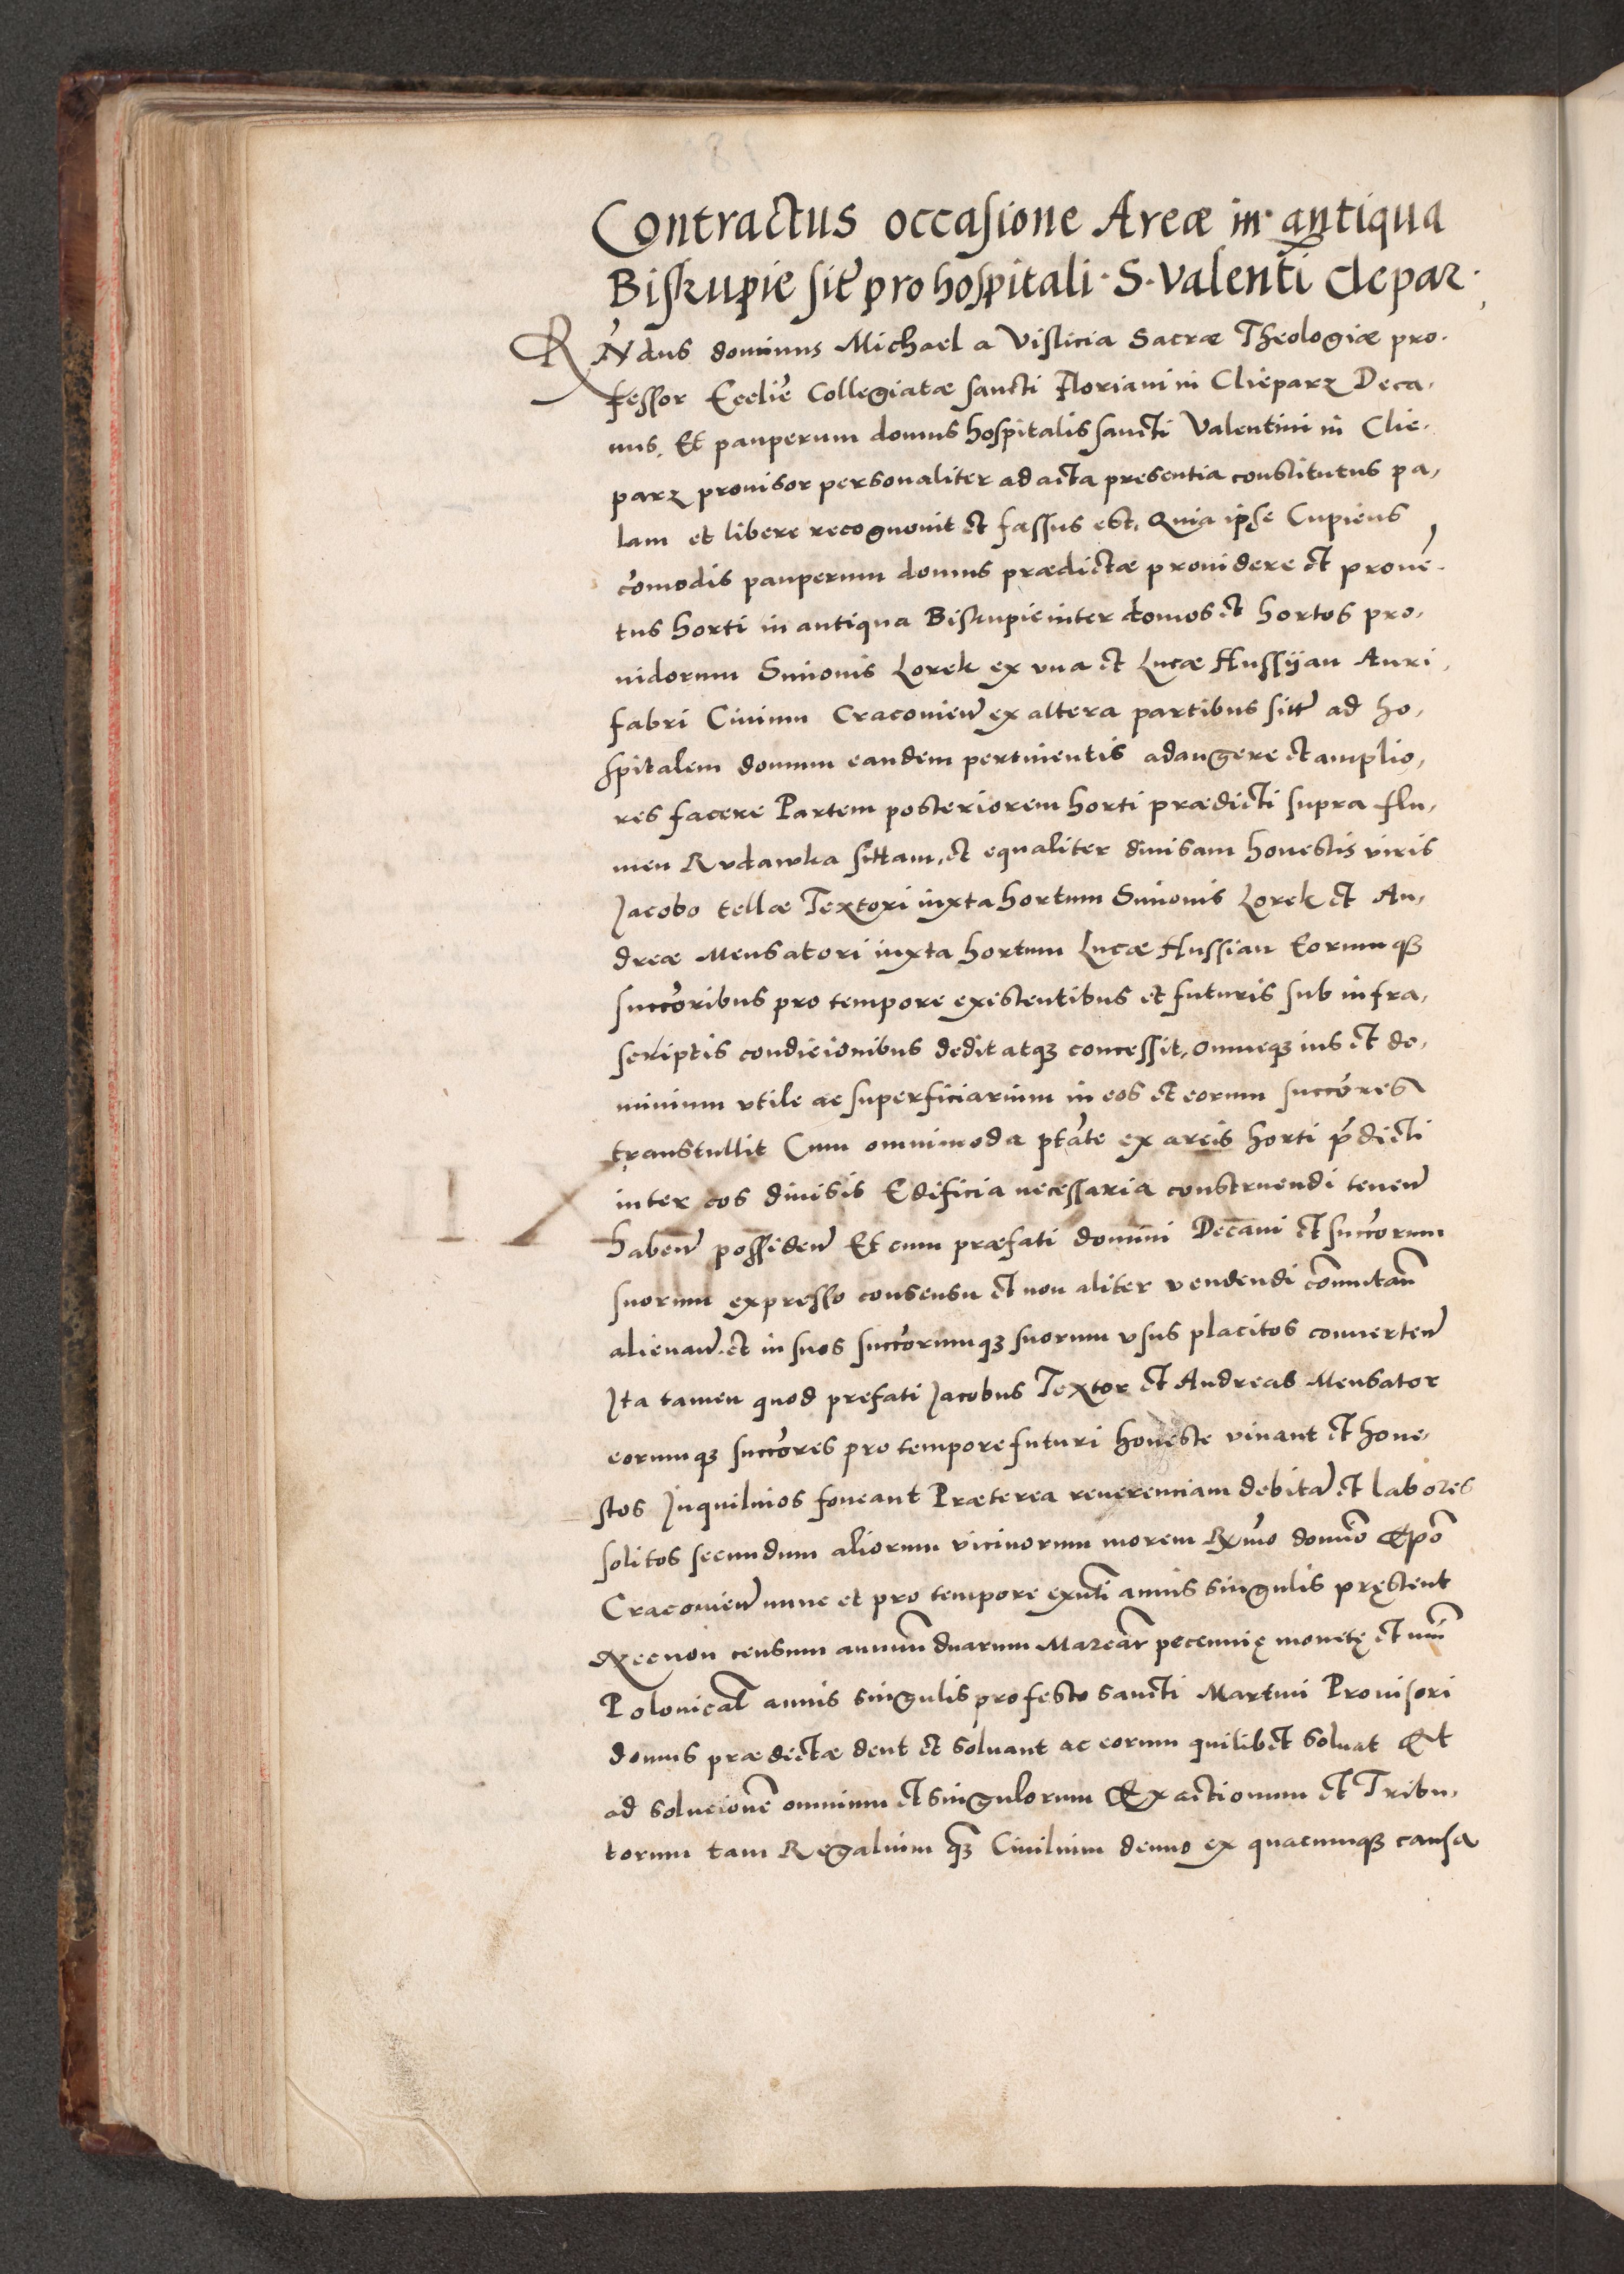 Contractus occasione Areæ in antiqua
Biskupie sit̃ pro hospitali · S · Valenti Clepar ·
RNdus dominus Michael a Vislicia Sacræ Theologiæ pro,
fessor Ecclie Collegiatæ sancti Floriani in Clieparz Deca,
nus, Et pauperum domus hospitalis sancti Valentini in Clie,
parz prouisor personaliter ad acta presentia constitutus pa,
lam et libere recognouit et fassus est, Quia ipse Cupiens
com̃odis pauperum domus prædictæ prouidere et prouẽ,
tus horti in antiqua Biskupie inter domos et hortos pro,
uidorum Simonis Lorek ex vna et Lucæ Hussÿan Auri,
fabri Ciuium Cracouieñ ex altera partibus sitt̃ ad ho,
spitalem domum eandem pertinentis adaugere et amplio,
res facere Partem posteriorem horti prædicti supra flu,
men Rvdawka sittam, et equaliter diuisam honestis viris
Jacobo tellæ Textori iuxta hortum Simonis Lorek et An,
dreæ Mensatori iuxta hortum Lucæ Hussian Eorumq3
succoribus pro tempore existentibus et futuris sub infra,
scriptis condicionibus dedit atq3 concessit, omneq3 ius et do,
minium vtile ac superficiarium in eos et eorum succores
transtullit Cum omnimoda ptate ex areis horti p̃dicti
inter eos diuisis Edificia necessaria construendi teneñ
habeñ possideñ Et cum præfati domini Decani et succorum
suorum expresso consensu et non aliter vendendi com̃utañ
alienañ et in suos succorumq3 suorum vsus placitos conuerteñ
Jta tamen quod prefati Jacobus Textor et Andreas Mensator
eorumq3 succores pro tempore futuri honeste viuant et hone,
stos Jnquilinos foueant Præterea reuerenciam debitã et labores
solitos secundum aliorum vicinorum morem Rx̃mo domĩo Epõ
Cracouieñ nunc et pro tempore exñti annis singulis pręstent
Necnon censum annuũ duarum Marcar̃ pecunnię monetę et nũi
Polonical̃ annis singulis pro festo sancti Martini Prouisori
domus prædictæ dent et soluant ac eorum quilibet soluat Et
ad solucionẽ omnium et singulorum Exactionum et Tribu,
torum tam Regalium q̃3 Ciuilium demo ex quacumq3 causa